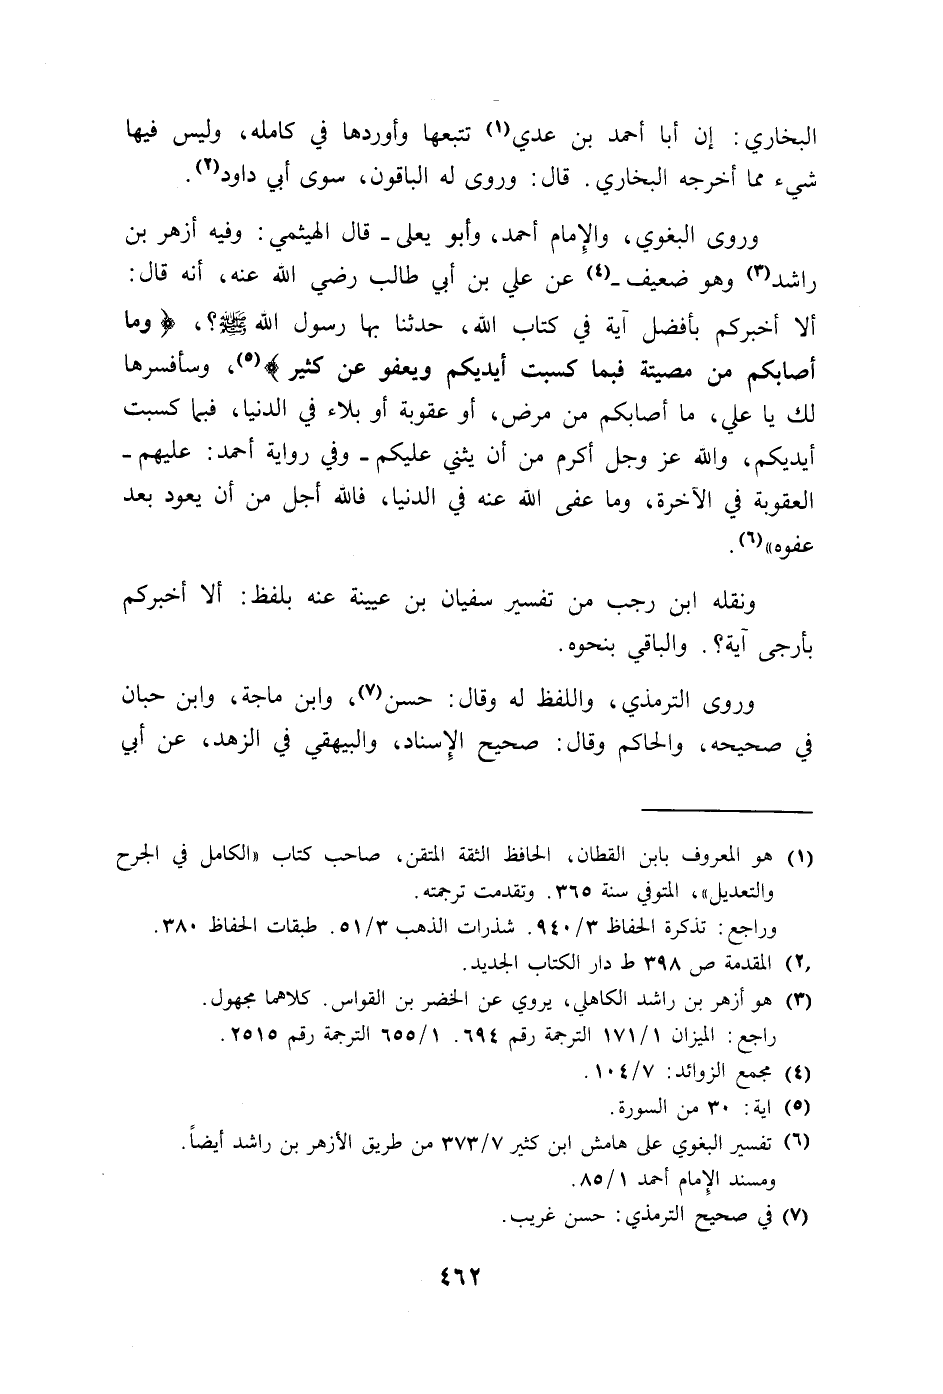 البخاري: إن أبا أحمد بن عدي(١) تتبعها وأوردها في كامله، وليس فيها
شيء مما أخرجه البخاري. قال: وروى له الباقون، سوى أبي داود(٢).
وروى البغوي، والإمام أحمد، وأبو يعلى ـ قال الهيثمي: وفيه أزهر بن
راشد(٣) وهو ضعيف ـ(٤) عن علي بن أبي طالب رضي الله عنه، أنه قال:
ألا أخبركم بأفضل آية في كتاب الله، حدثنا بها رسول الله ﷺ؟، ﴿وما
أصابكم من مصيتة فبما كسبت أيديكم ويعفو عن كثير﴾(٥)، وسأفسرها
لك يا علي، ما أصابكم من مرض، أو عقوبة أو بلاء في الدنيا، فبما كسبت
أيديكم، والله عز وجل أكرم من أن يثني عليكم ـ وفي رواية أحمد: عليهم ـ
العقوبة في الآخرة، وما عفى الله عنه في الدنيا، فالله أجل من أن يعود بعد
عفوه»(٦).
ونقله ابن رجب من تفسير سفيان بن عيينة عنه بلفظ: ألا أخبركم
بأرجى آية؟. والباقي بنحوه.
وروى الترمذي، واللفظ له وقال: حسن(٧)، وابن ماجة، وابن حبان
في صحيحه، والحاكم وقال: صحيح الإسناد، والبيهقي في الزهد، عن أبي
(١) هو المعروف بابن القطان، الحافظ الثقة المتقن، صاحب كتاب «الكامل في الجرح
والتعديل»، المتوفي سنة ٣٦٥. وتقدمت ترجمته.
وراجع: تذكرة الحفاظ ٩٤٠/٣. شذرات الذهب ٥١/٣. طبقات الحفاظ ٣٨٠.
(٢) المقدمة ص ٣٩٨ ط دار الكتاب الجديد.
(٣) هو أزهر بن راشد الكاهلي، يروي عن الخضر بن القواس. كلاهما مجهول.
راجع: الميزان ١٧١/١ الترجمة رقم ٦٩٤. ٦٥٥/١ الترجمة رقم ٢٥١٥.
(٤) مجمع الزوائد: ١٠٤/٧.
(٥) اية: ٣٠ من السورة.
(٦) تفسير البغوي على هامش ابن كثير ٣٧٣/٧ من طريق الأزهر بن راشد أيضاً.
ومسند الإمام أحمد ٨٥/١.
(٧) في صحيح الترمذي: حسن غريب.
٤٦٢